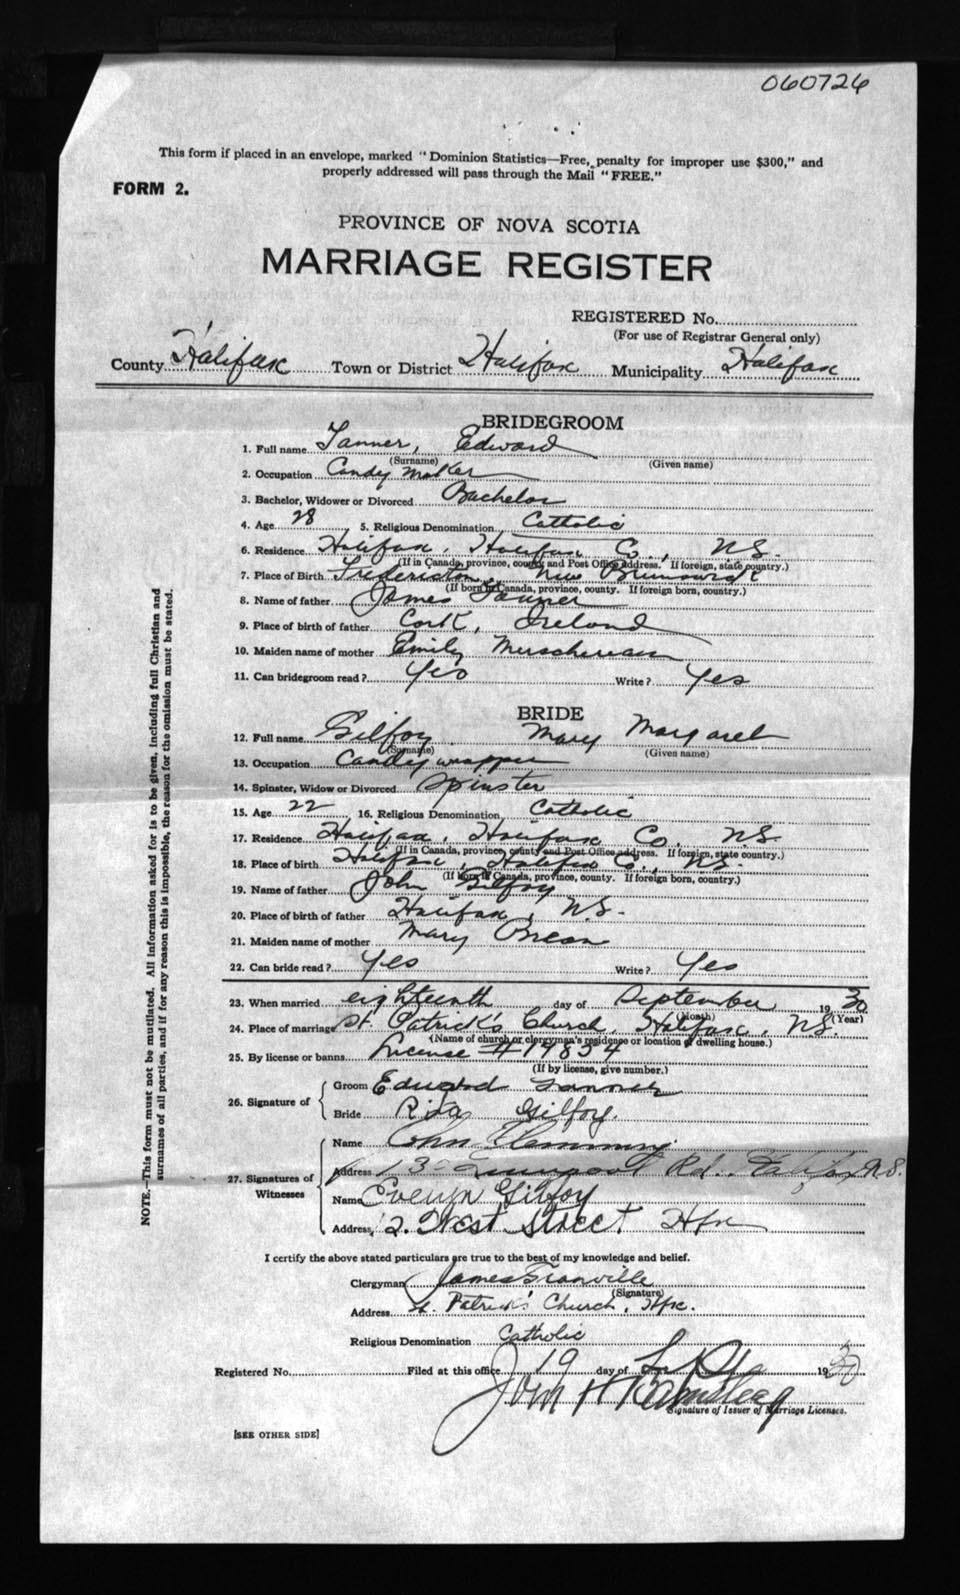 060726
This form if placed in an envelope, marked "Dominion Statistics—Free, penalty for improper use $300," and
properly addressed will pass through the Mail "FREE."
FORM 2.
PROVINCE OF NOVA SCOTIA
MARRIAGE REGISTER
REGISTERED No.
(For use of Registrar General only)
County Halifax Town or District Halifax Municipality Halifax
BRIDEGROOM
1. Full name Tanner, Edward
(Surname) (Given name)
2. Occupation Candy Maker
3. Bachelor, Widower or Divorced Bachelor
4. Age 28 5. Religious Denomination Catholic
6. Residence Halifax, Halifax Co., N.S.
(If in Canada, province, county and Post Office address. If foreign, state country.)
7. Place of Birth Fredericton, New Brunswick
(If born in Canada, province, county. If foreign born, country.)
8. Name of father James Tanner
9. Place of birth of father Cork, Ireland
10. Maiden name of mother Emily
11. Can bridegroom read? Yes Write? Yes
BRIDE
12. Full name Gilfoy Mary Margaret
(Surname) (Given name)
13. Occupation Candy wrapper
14. Spinster, Widow or Divorced Spinster
15. Age 22 16. Religious Denomination Catholic
17. Residence Halifax, Halifax Co., N.S.
(If in Canada, province, county and Post Office address. If foreign, state country.)
18. Place of birth Halifax, Halifax Co., N.S.
(If born in Canada, province, county. If foreign born, country.)
19. Name of father John Gilfoy
20. Place of birth of father Halifax, N.S.
21. Maiden name of mother Mary
22. Can bride read? Yes Write? Yes
23. When married eighteenth day of September 1930
(Month) (Year)
24. Place of marriage St. Patrick's Church, Halifax, N.S.
(Name of church or clergyman's residence or location of dwelling house.)
25. By license or banns License #19834
(If by license, give number.)
26. Signature of Groom Edward Tanner
Bride Rita Gilfoy.
27. Signatures of Witnesses Name John Flemming
Address Rd., Halifax N.S.
Name Evelyn Gilfoy
Address 12 West Street Hfx
I certify the above stated particulars are true to the best of my knowledge and belief.
Clergyman James Granville
(Signature)
Address St. Patrick's Church, Hfx.
Religious Denomination Catholic
Registered No. Filed at this office 19 day of 1930
John H
Signature of Issuer of Marriage Licenses.
[SEE OTHER SIDE]
NOTE.—This form must not be mutilated. All information asked for is to be given, including full Christian and
surnames of all parties, and if for any reason this is impossible, the reason for the omission must be stated.